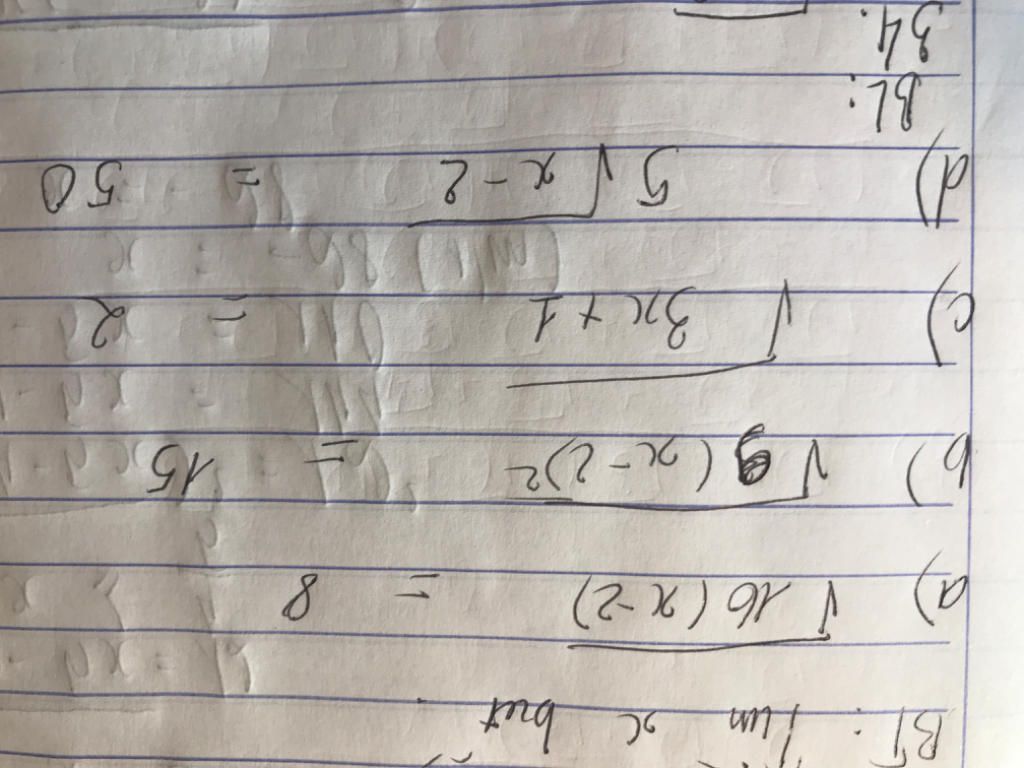 BT: Tìm x biết
a) √16(x-2) = 8
b) √9(x-2)² = 15
c) √3x+1 = 2
d) 5√x-2 = 50
BL:
34.